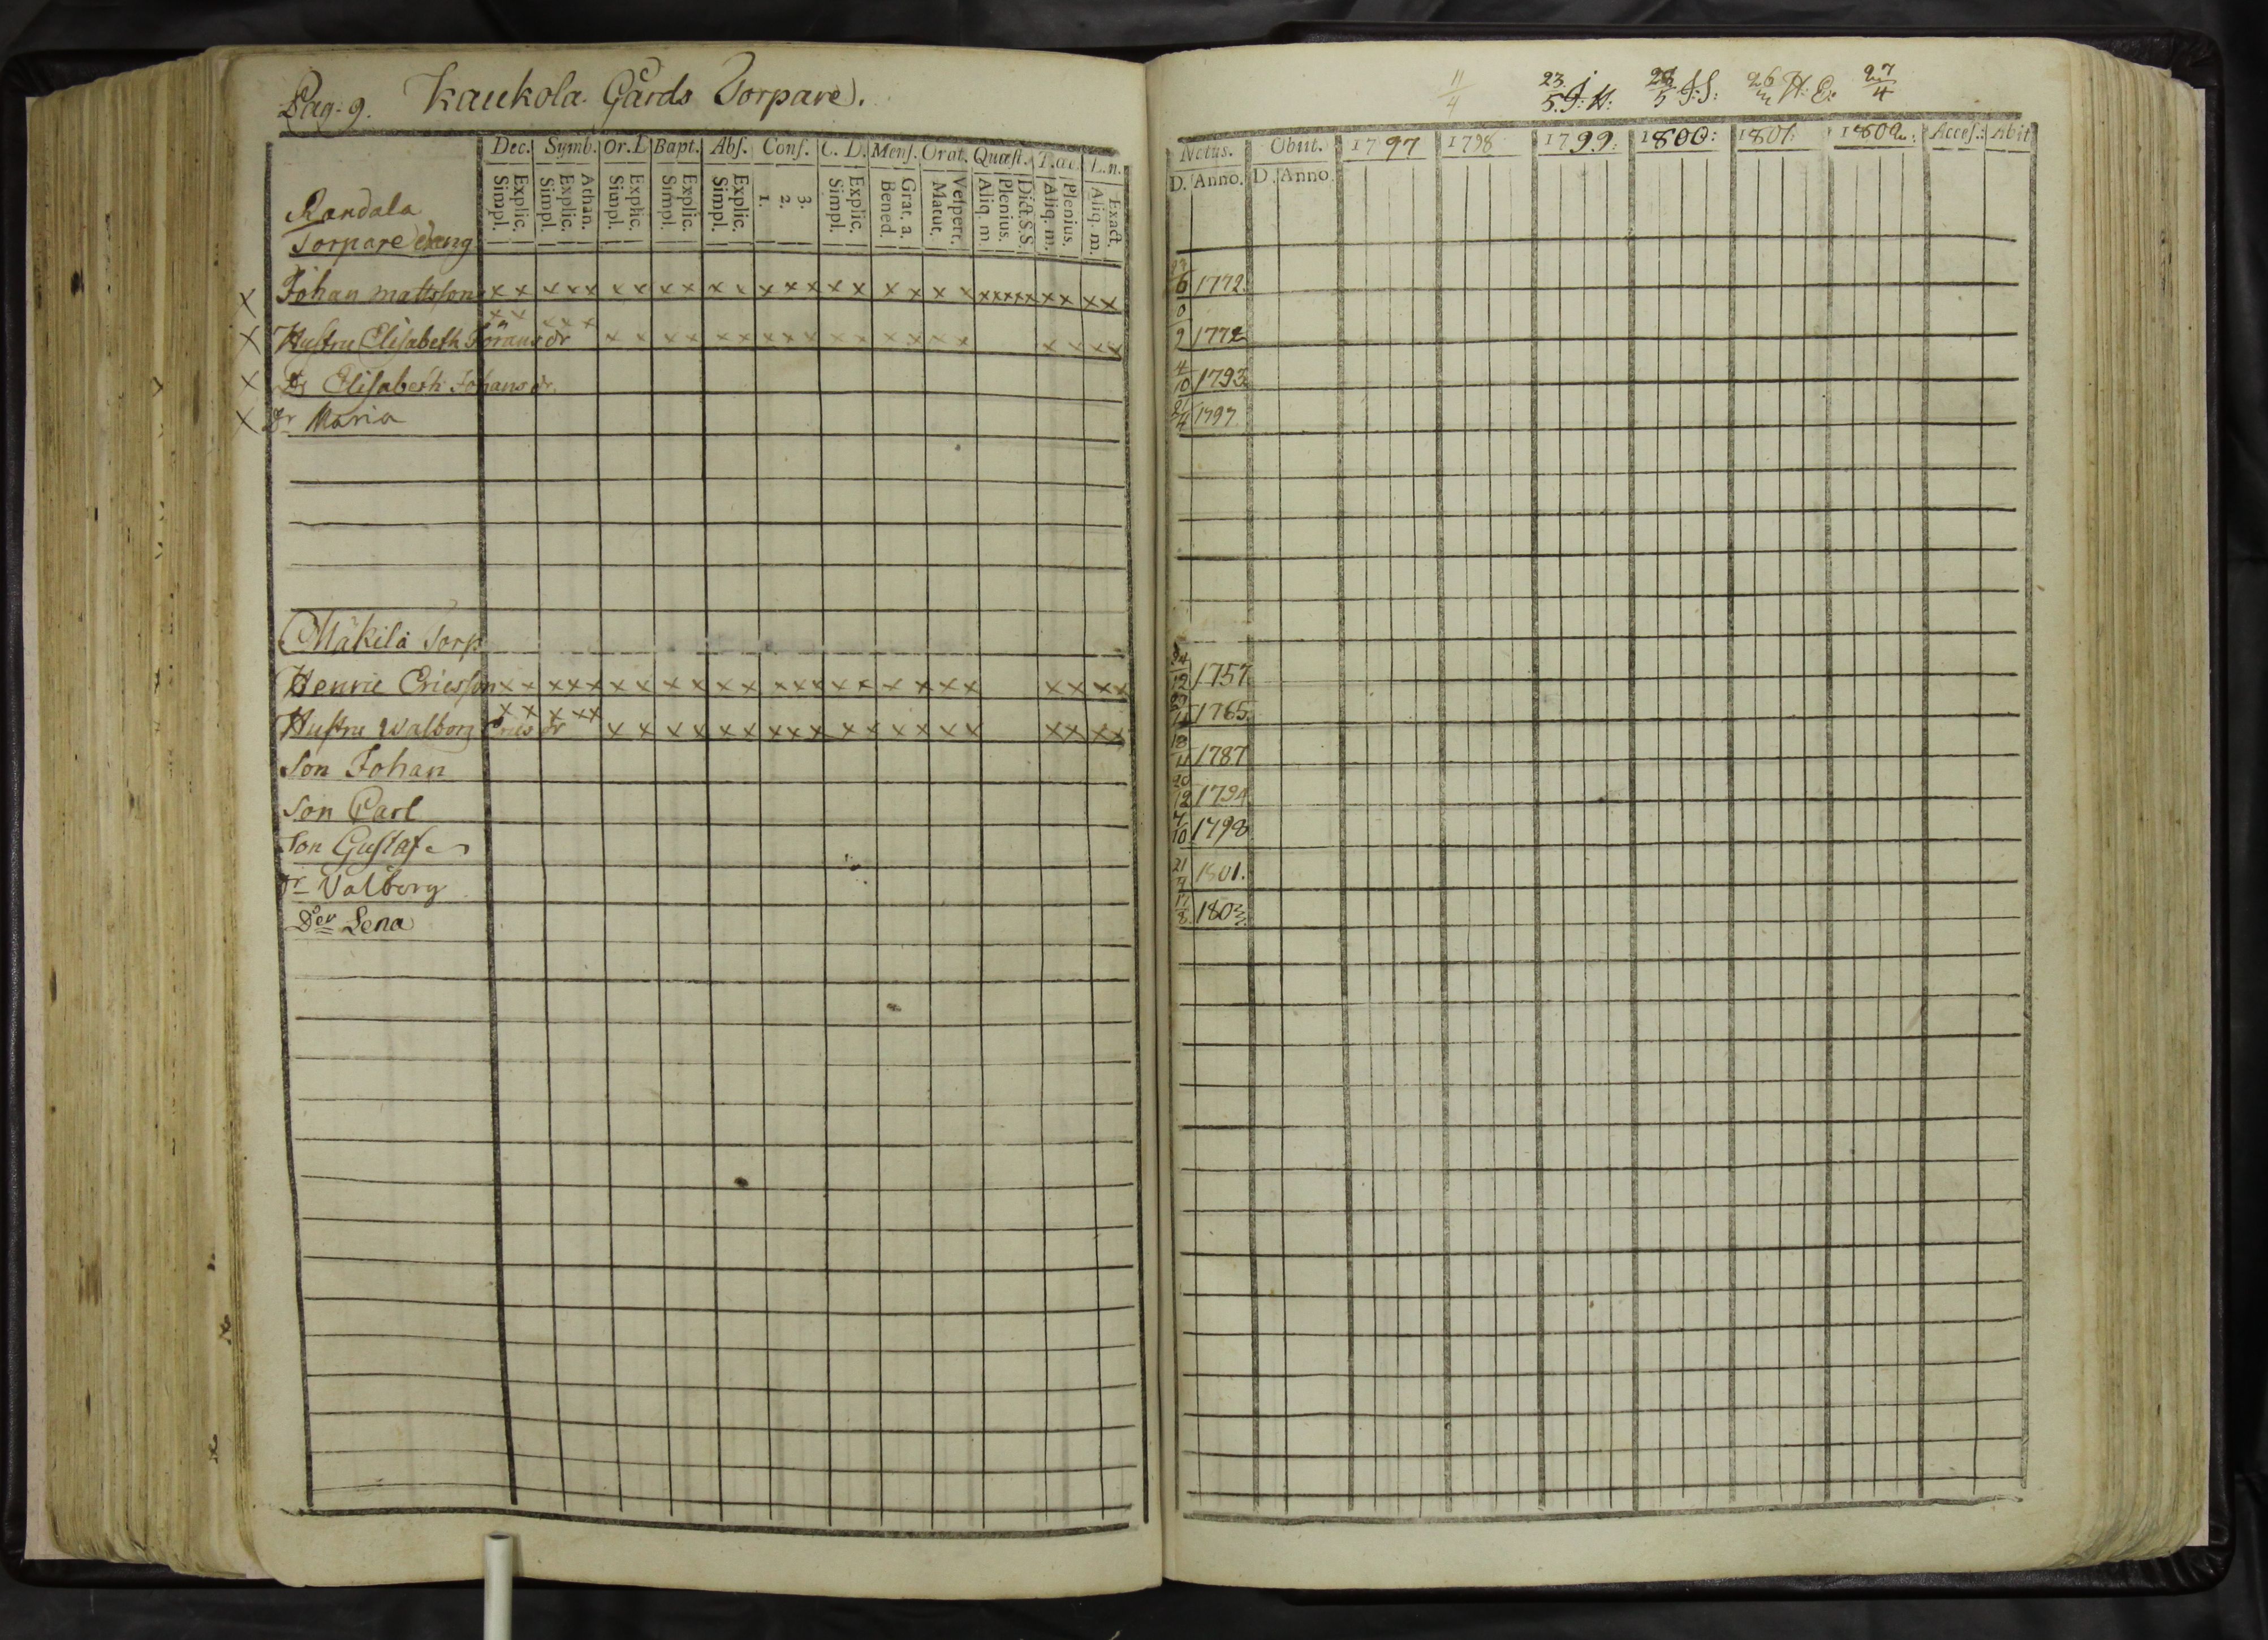 Pag. 9. Kaukola Gårds Torpare.
Dec. Symb. Or. D Bapt. Abs. Conf. C. D. Mens. Orat. Quæst. T. œc. L. n.
Explic. Simpl. Athan. Explic. Simpl. Explic. Simpl. Explic. Simpl. Explic. Simpl. 3. 2. 1. Explic. Simpl. Grat. a. Bened. Vespert. Matut. Dict. S. S. Plenius. Aliq. m. Plenius. Aliq. m. Exact. Aliq. m.
Randala
Torpare
x Johan Mattsson x x x x x x x x x x x x x x x x x x x x x x x x x x x x x
x Hustru Elisabeth Jöransdr x x x x x x x x x x x x x x x x x x x x x x
x Dr Elisabeth Johansdr.
x Dr Maria
Mäkilä Torp
Henric Ericsson x x x x x x x x x x x x x x x x x x x x x x x x
Hustru Walborg Ericsdr x x x x x x x x x x x x x x x x x x x x x x x x
Son Johan
Son Carl
Son Gustaf
Dr Valborg
Der Lena
11/4 23/5 J. H. 5 J: S: 26 H. E: 27/4
Natus. Obiit. 1797 1798 1799. 1800: 1801: 1802: Access: Abit
D. Anno. D. Anno.
6 1772.
9 1772
4/10 1793
4 1797
24/12 1757
1765
18 1787
20/12 1794
7/10 1798
21 1801.
17/8 1803.